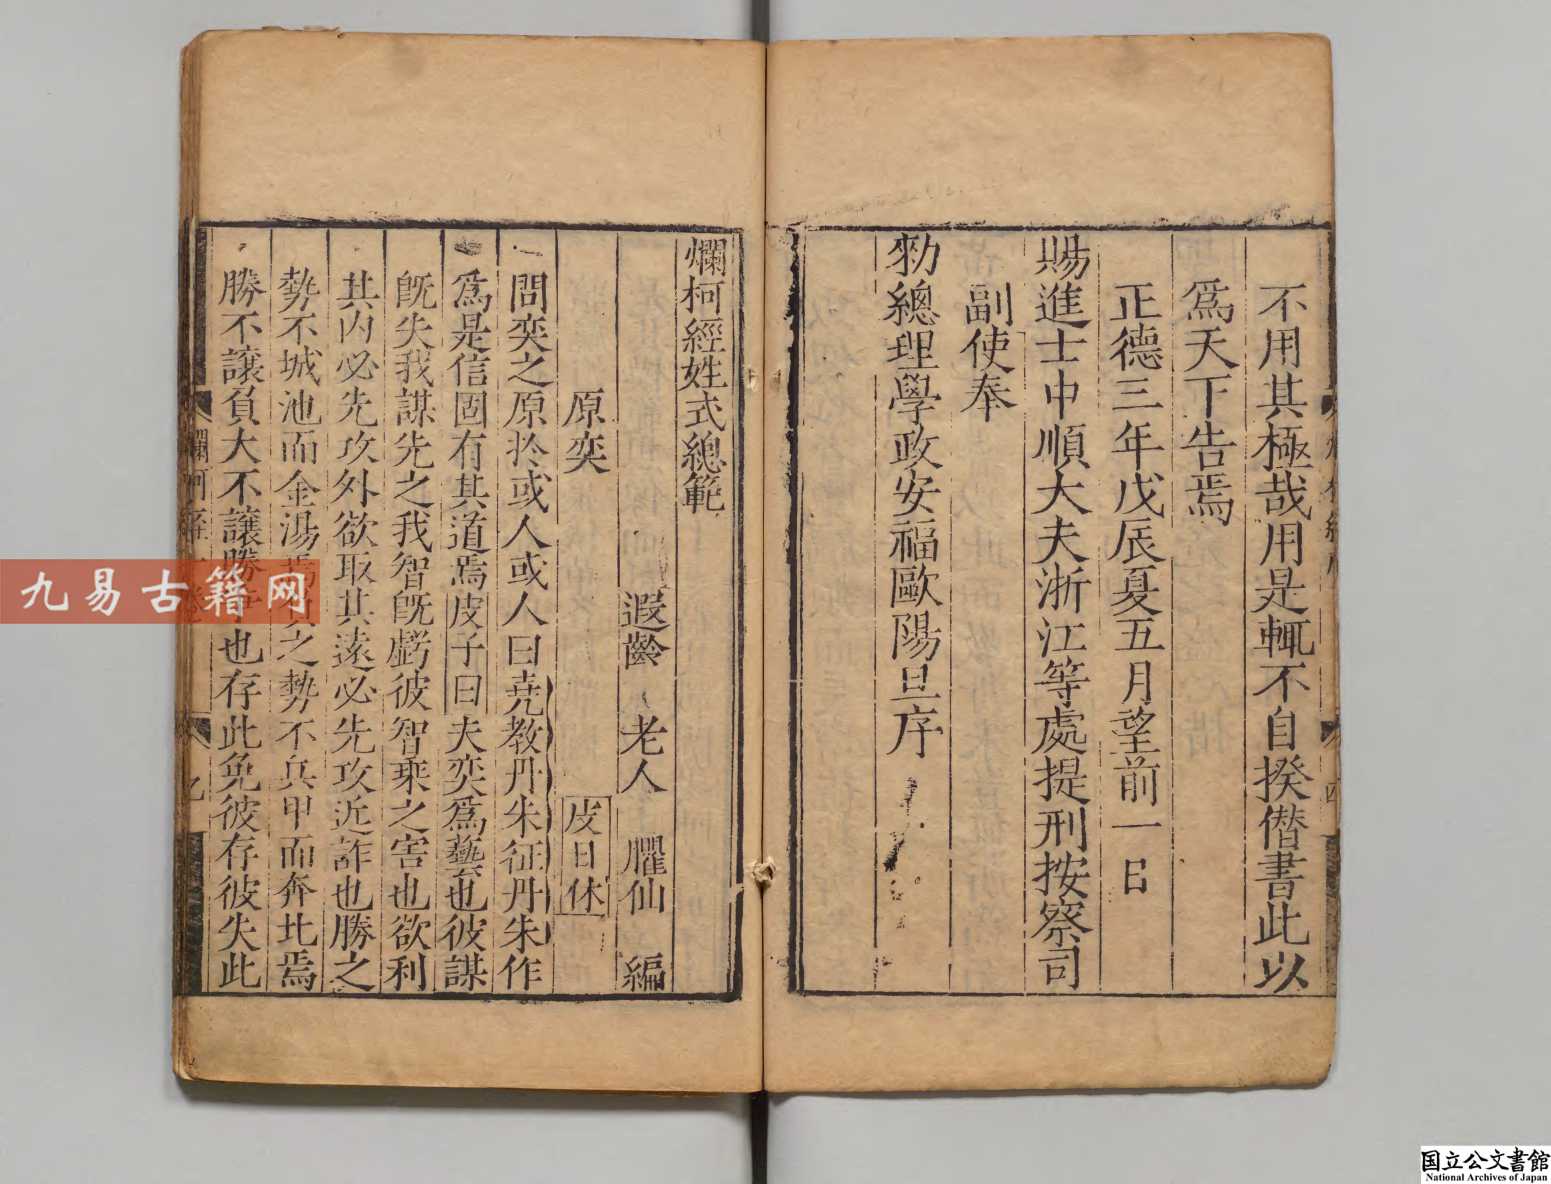 不用其極哉用是輒不自揆僣書此以
爲天下告焉
正德三年戊辰夏五月望前一日
賜進士中順大夫浙江等處提刑按察司
副使奉
勑總理學政安福歐陽旦序
爛柯經姓式總範
遐齡老人臞仙編
原奕 皮日休
問奕之原扵或人或人曰堯教丹朱征丹朱作
爲是信固有其道焉皮子曰夫奕爲藝也彼謀
旣失我謀先之我智旣虧彼智乘之害也欲利
其内必先攻外欲取其遠必先攻近詐也勝之
勢不城池而金湯焉之勢不兵甲而奔北焉
勝不讓負大不讓也存此免彼存彼失此
九易古籍网
国立公文書館
National Archives of Japan